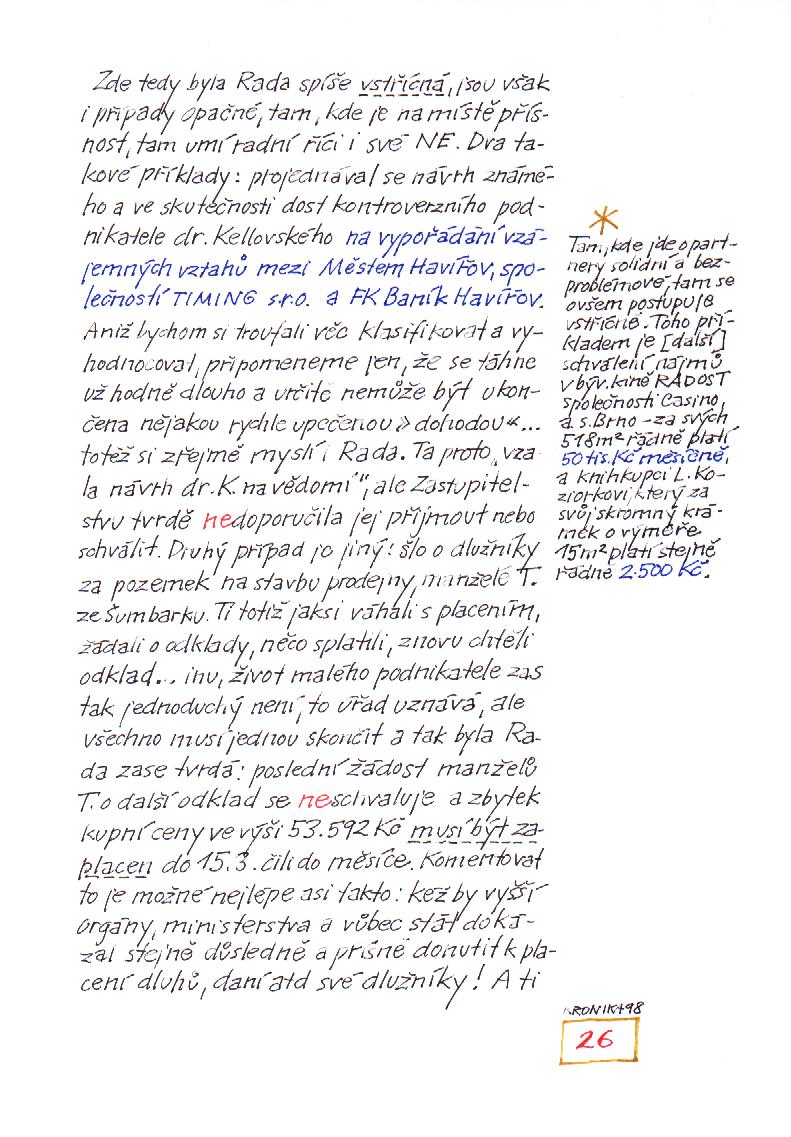 Zde tedy byla Rada spíše vstřícná, jsou však
i případy opačné, tam, kde je na místě přís-
nost, tam umí radní říci i své NE. Dva ta-
kové příklady: projednával se návrh známé-
ho a ve skutečnosti dost kontroverzního pod-
nikatele dr. Kellovského na vypořádání vzá-
jemných vztahů mezi Městem Havířov, spo-
lečností TIMING s.r.o. a FK Baník Havířov.
Aniž bychom si troufali věc klasifikovat a vy-
hodnocovat, připomeneme jen, že se táhne
už hodně dlouho a určitě nemůže být ukon-
čena nějakou rychle upečenou »dohodou«...
totéž si zřejmě myslí i Rada. Ta proto „vza-
la návrh dr. K. na vědomí", ale Zastupitel-
stvu tvrdě nedoporučila jej přijmout nebo
schválit. Druhý případ je jiný: šlo o dlužníky
za pozemek na stavbu prodejny, manželé T.
ze Šumbarku. Ti totiž jaksi váhali s placením,
žádali o odklady, něco splatili, znovu chtěli
odklad... inu, život malého podnikatele zas
tak jednoduchý není, to úřad uznává, ale
všechno musí jednou skončit a tak byla Ra-
da zase tvrdá: poslední žádost manželů
T. o další odklad se neschvaluje a zbytek
kupní ceny ve výši 53.592 Kč musí být za-
placen do 15.3. čili do měsíce. Komentovat
to je možné nejlépe asi takto: kéž by vyšší
orgány, ministerstva a vůbec stát doká-
zal stejně důsledně a přísně donutit k pla-
cení dluhů, daní atd své dlužníky! A ti
Tam, kde jde o part-
nery solidní a bez-
problémové, tam se
ovšem postupuje
vstřícně. Toho pří-
kladem je [další]
schválení nájmů
v býv. kině RADOST
společnosti Casino,
a s. Brno - za svých
518m² řádně platí
50 tis. Kč měsíčně,
a knihkupci L. Ko-
ziorkovi, který za
svůj skromný krá-
mek o výměře
15m² platí stejně
řádně 2.500 Kč.
KRONIKA 98
26